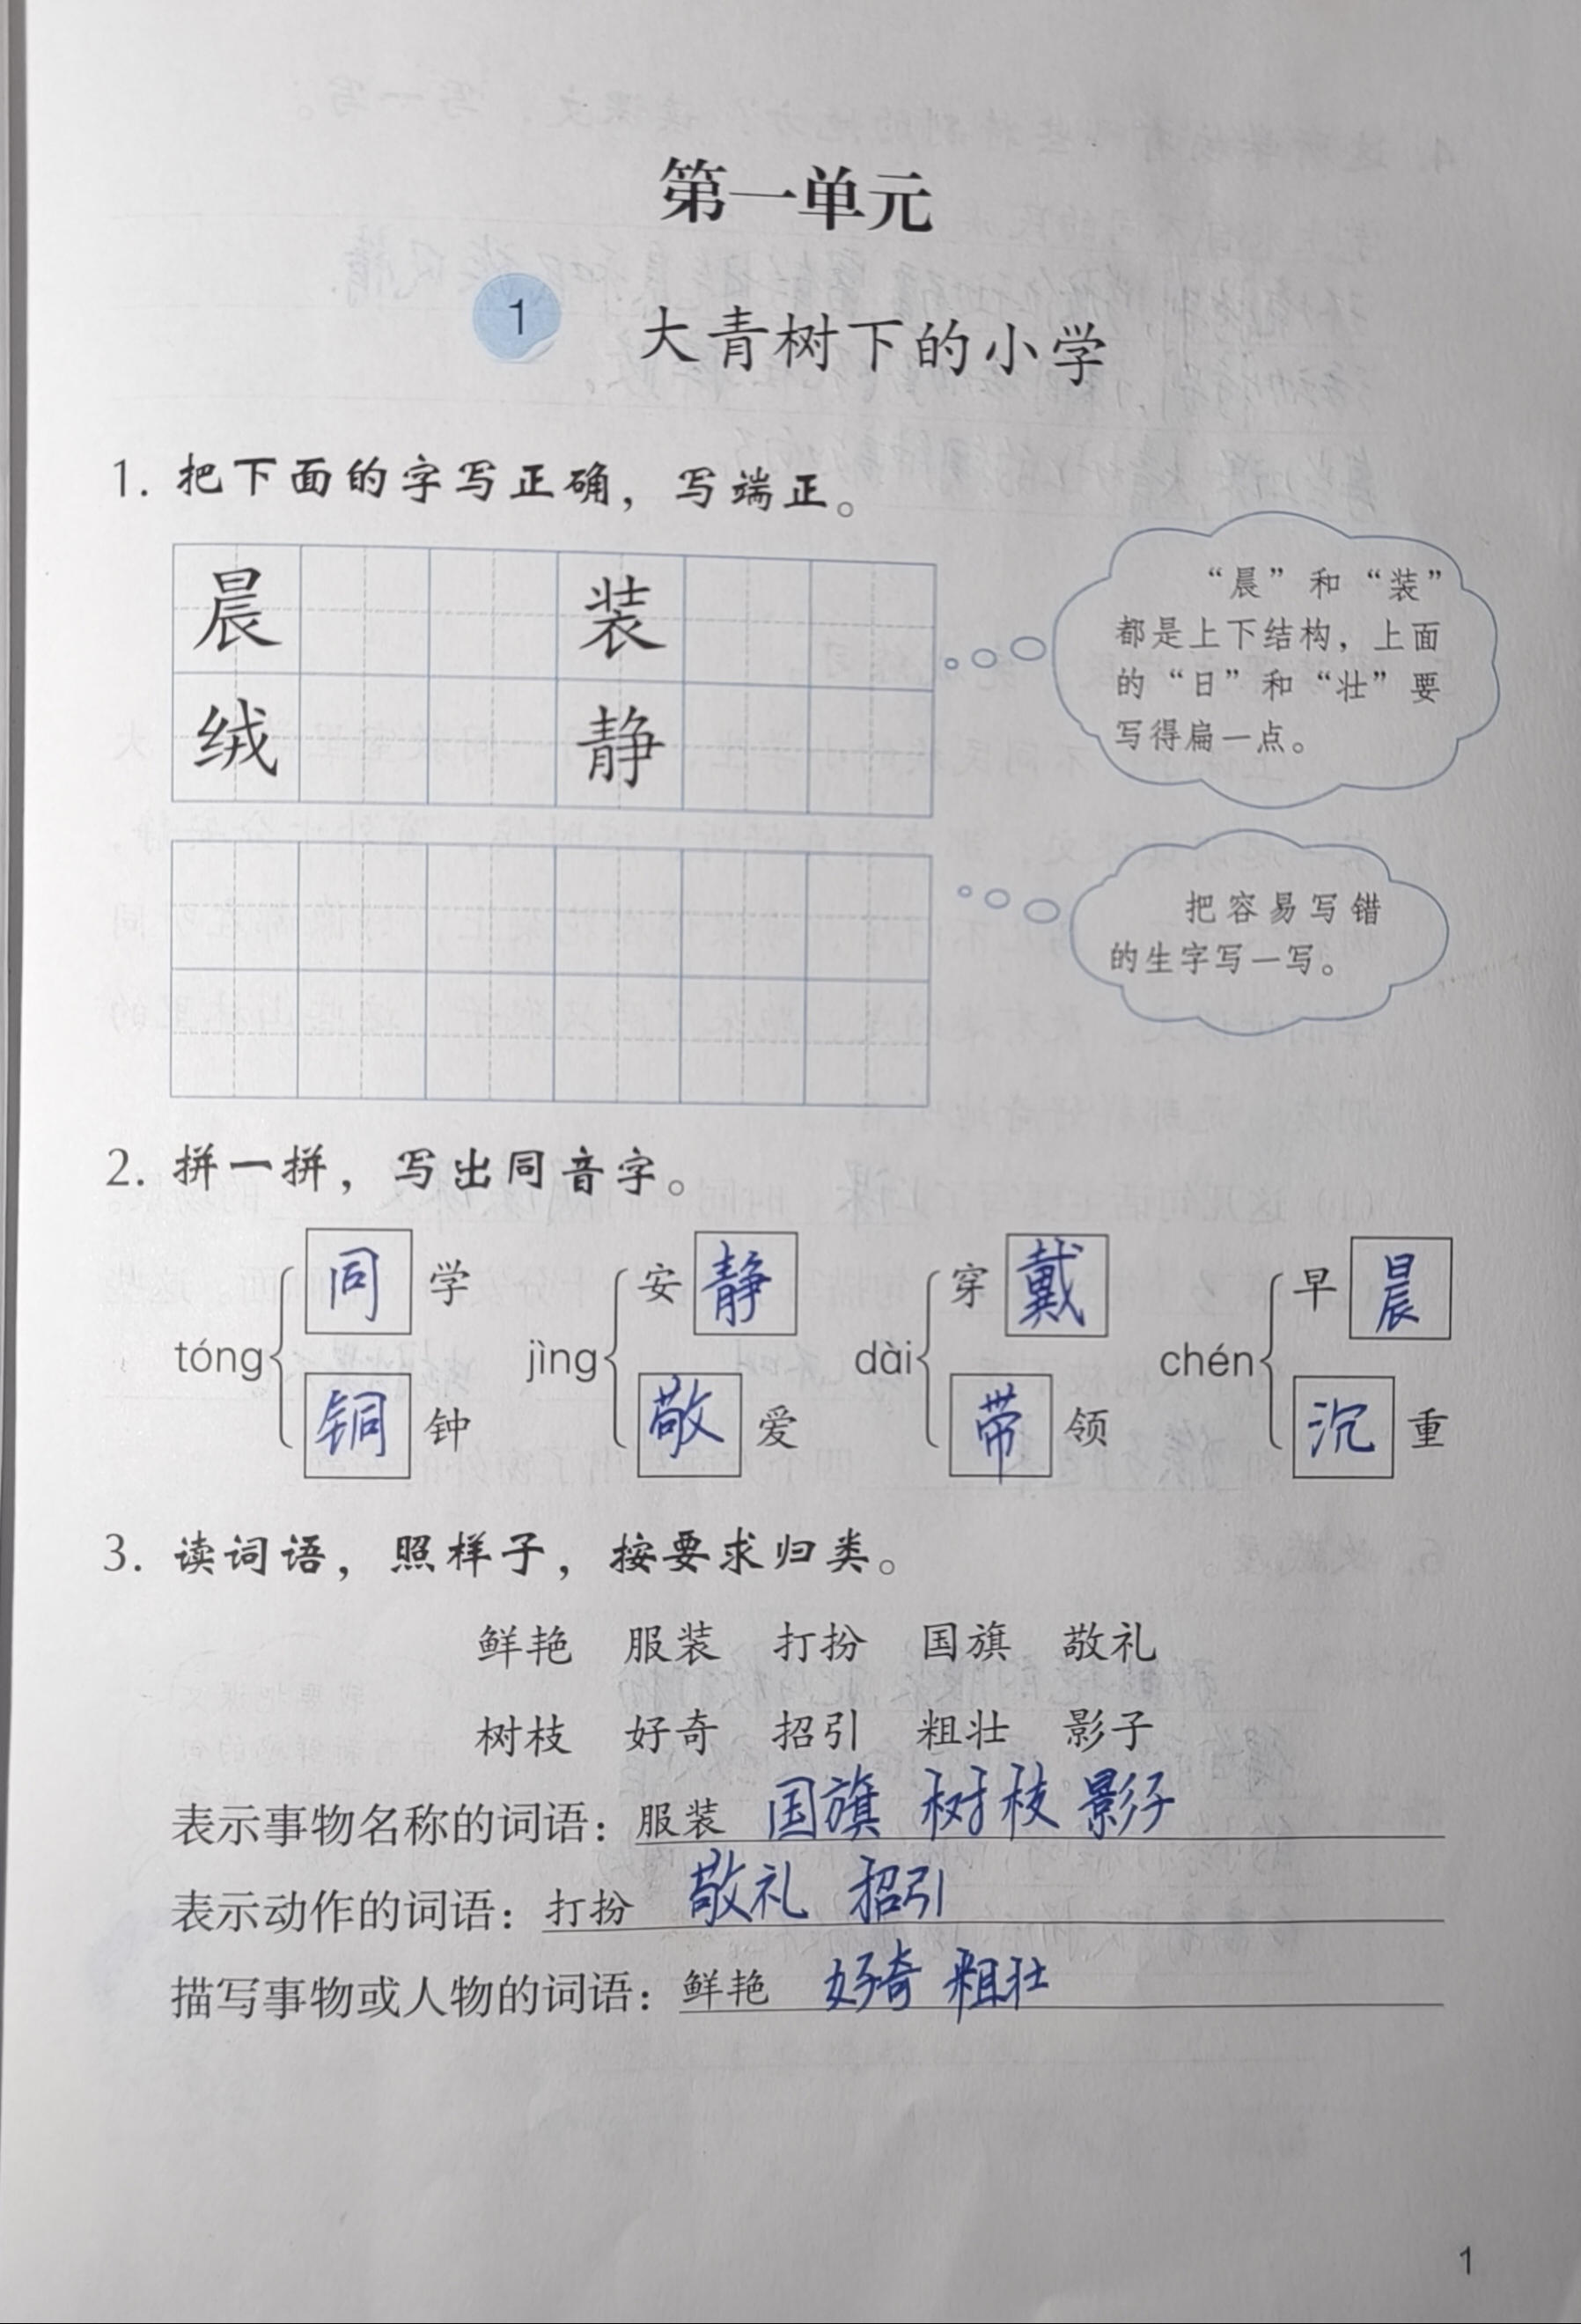 第一单元
1 大青树下的小学
1. 把下面的字写正确，写端正。
晨 装
绒 静
“晨”和“装”
都是上下结构，上面
的“日”和“壮”要
写得扁一点。
把容易写错
的生字写一写。
2. 拼一拼，写出同音字。
同学 安静 穿戴 早晨
tóng jìng dài chén
铜钟 敬爱 带领 沉重
3. 读词语，照样子，按要求归类。
鲜艳 服装 打扮 国旗 敬礼
树枝 好奇 招引 粗壮 影子
表示事物名称的词语：服装 国旗 树枝 影子
表示动作的词语：打扮 敬礼 招引
描写事物或人物的词语：鲜艳 好奇 粗壮
1